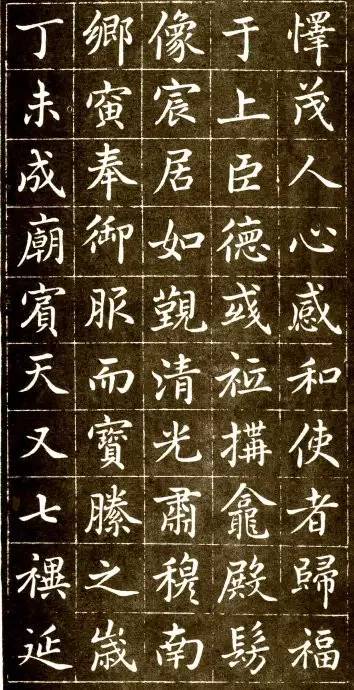 懌茂人心感和使者歸福
于上臣德彧祗搆龕殿髣
像宸居如覲清光肅穆南
鄉寅奉御服而寶縢之歲
丁未成廟賓天又七禩延